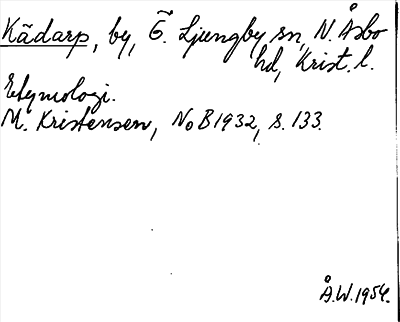 Kådarp, by, Ö. Ljungby sn, N. Åsbo
hd, Krist. l.
Etymologi.
M. Kristensen, NoB 1932, s. 133.
Å.W. 1954.